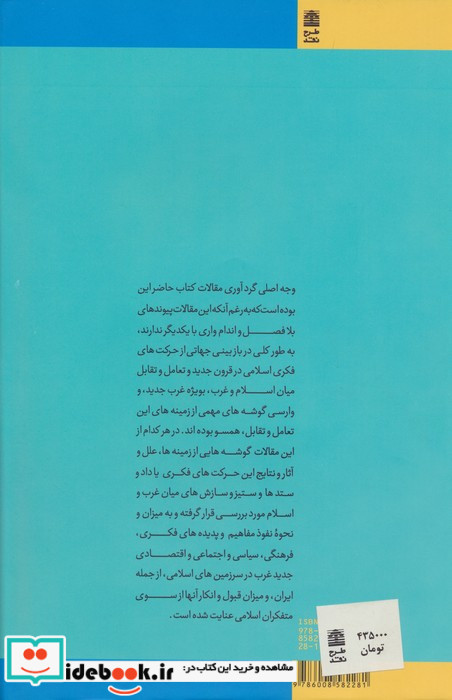 طرح
نقد
وجه اصلی گردآوری مقالات کتاب حاضر این
بوده است که به رغم آنکه این مقالات پیوندهای
بلافصل و اندام واری با یکدیگر ندارند،
به طور کلی در بازبینی جهاتی از حرکت های
فکری اسلامی در قرون جدید و تعامل و تقابل
میان اسلام و غرب، بویژه غرب جدید، و
وارسی گوشه های مهمی از زمینه های این
تعامل و تقابل، همسو بوده اند. در هر کدام از
این مقالات گوشه هایی از زمینه ها، علل و
آثار و نتایج این حرکت های فکری یا داد و
ستد ها و ستیز و سازش های میان غرب و
اسلام مورد بررسی قرار گرفته و به میزان و
نحوهٔ نفوذ مفاهیم و پدیده های فکری،
فرهنگی، سیاسی و اجتماعی و اقتصادی
جدید غرب در سرزمین های اسلامی، از جمله
ایران، و میزان قبول و انکار آنها از سوی
متفکران اسلامی عنایت شده است.
ISBN
978-
8582
28-1
۴۳۵۰۰۰
تومان
طرح
نقد
9 786008 582281
مشاهده و خرید این کتاب در:
idebook.ir